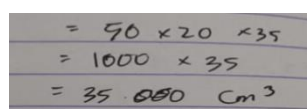 = 50 x 20 x 35
= 1000 x 35
= 35.000 cm³